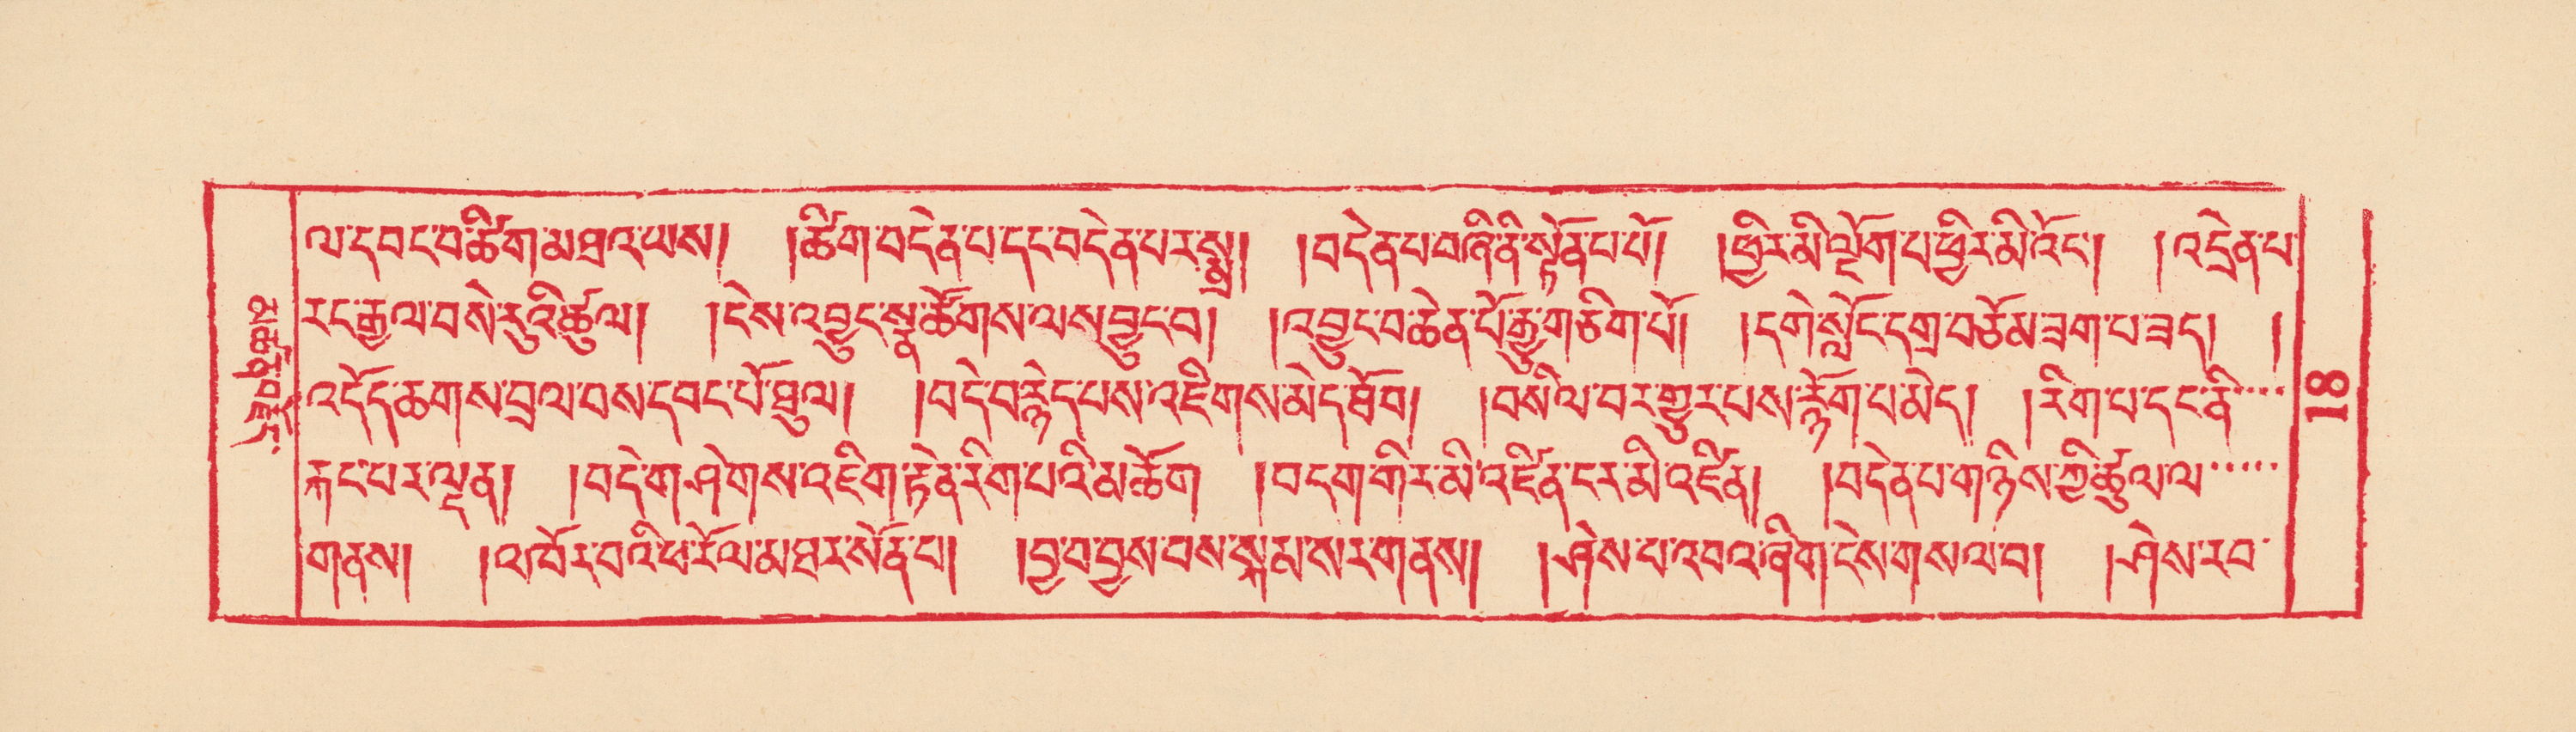 ལ་དབང་བ་ཚིག་མཐའ་ཡས། །ཚིག་བདེན་པ་དང་བདེན་པར་སྨྲ། །བདེན་པ་བཞི་ནི་སྟོན་པ་པོ། །ཕྱིར་མི་ལྡོག་པ་ཕྱིར་མི་འོང་། །འདྲེན་པ་
རང་རྒྱལ་བསེ་རུའི་ཚུལ། །ངེས་འབྱུང་སྣ་ཚོགས་ལས་བྱུང་བ། །འབྱུང་བ་ཆེན་པོ་རྒྱུ་གཅིག་པོ། །དགེ་སློང་དགྲ་བཅོམ་ཟག་པ་ཟད། །
འདོད་ཆགས་བྲལ་བས་དབང་པོ་ཐུལ། །བདེ་བ་རྙེད་པས་འཇིགས་མེད་ཐོབ། །བསིལ་བར་གྱུར་པས་རྙོག་པ་མེད། །རིག་པ་དང་ནི་····
རྐང་པར་ལྡན། །བདེ་གཤེགས་འཇིག་རྟེན་རིག་པའི་མཆོག །བདག་གིར་མི་འཛིན་ངར་མི་འཛིན། །བདེན་པ་གཉིས་ཀྱི་ཚུལ་ལ་·····
གནས། །འཁོར་བའི་ཕ་རོལ་མཐར་སོན་པ། །བྱ་བ་བྱས་བས་སྐམ་སར་གནས། །ཤེས་པ་འབའ་ཞིག་ངེས་གསལ་བ། །ཤེས་རབ་
18